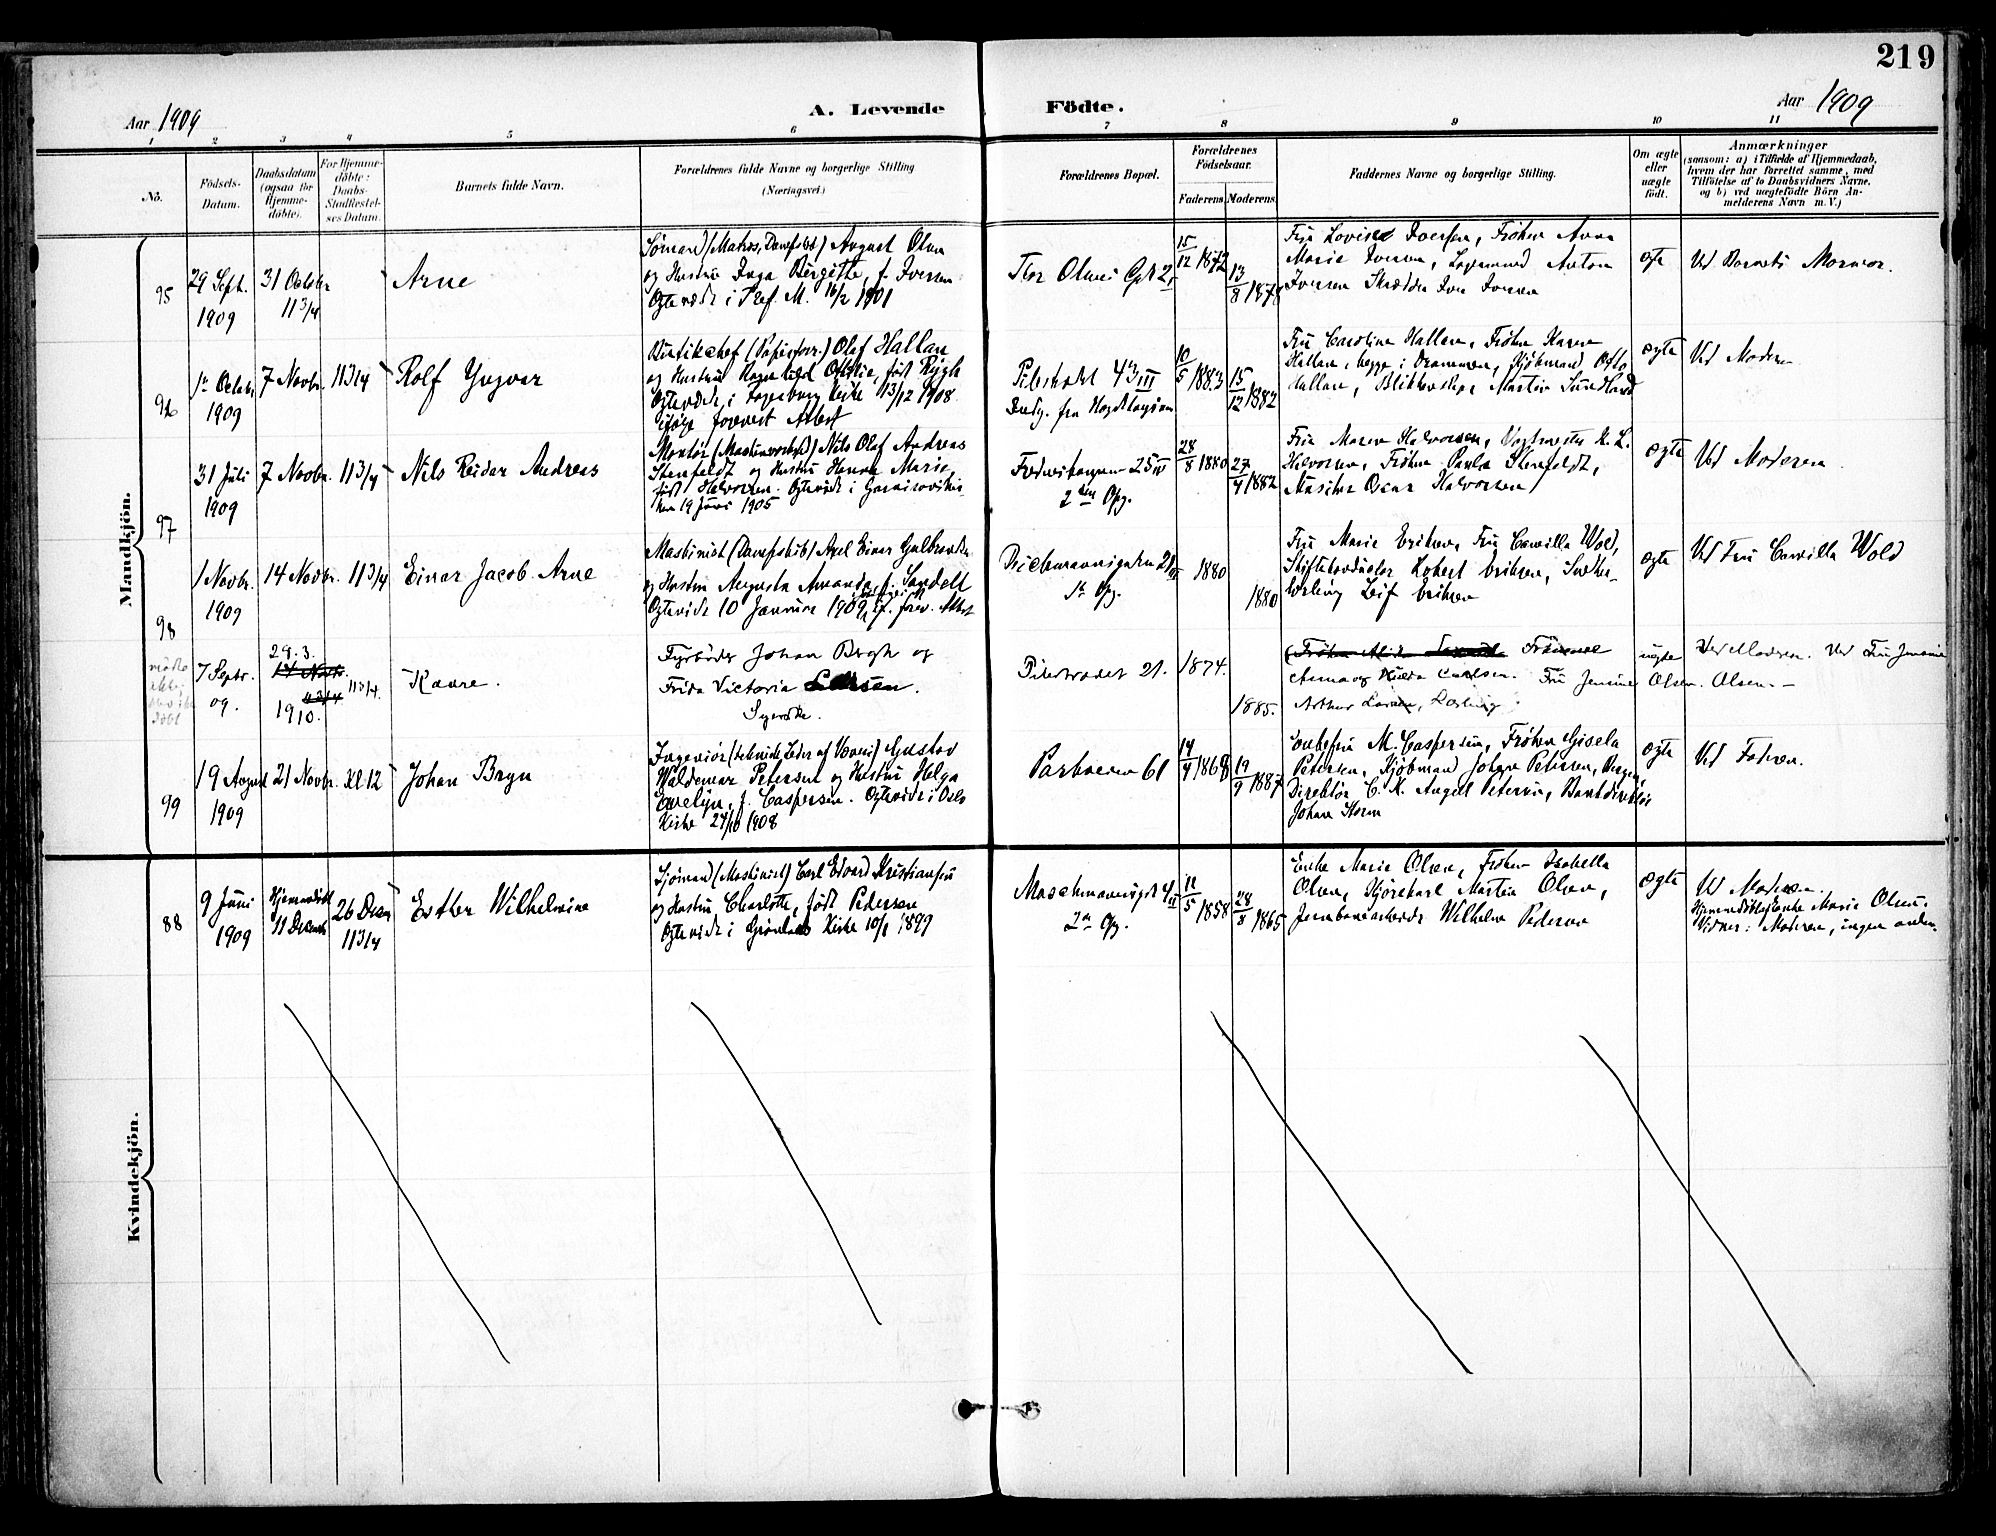 219
Aar 1909
A. Levende Födte.
Aar 1909
1 2 3 4 5 6 7 8 9 10 11
No.
Födsels-
Datum.
Daabsdatum
(ogsaa for
Hjemme-
döbte).
For Hjemme-
döbte:
Daabs-
Stadfæstel-
ses Datum.
Barnets fulde Navn.
Forældrenes fulde Navne og borgerlige Stilling
(Næringsvei)
Forældrenes Bopæl.
Forældrenes
Födselsaar.
Faderens Moderens
Faddernes Navne og borgerlige Stilling.
Om ægte
eller
uægte
født.
Anmærkninger
(saasom: a) i Tilfælde af Hjemmedaab,
hvem der har forrettet samme, med
Tilføielse af to Daabsvidners Navne,
og b) ved uegtefödte Börn An-
melderens Navn m. V.)
Mandkjön.
95
29 Sept.
1909
31 October
11 3/4
Arne
Sømand (Matros, ) August Olsen
og Hustru Inga Birgitte, f. Iversen
Ogteviede i M. 16/2 1901
Thor Olsens Gt 2
15/12 1872
13/8 1878
Fru Lovise Iversen, Frøken Anna
Marie Iversen, Anton
Iversen Iver Iversen
Ved Barnets Mormor.
96
1 Octobr
1909
7 Novbr. 11 3/4
Rolf Yngvar
Butikchef Olaf Hallan
og Hustru Ragnhild Othilie, født Rygh
Ogteviede i Fagerborg Kirke 13/12 1908
ifølge forevist Attest
Pilestrædet 43 III
10/5 1883
15/12 1882
Fru Caroline Hallan, Frøken Karen
Hallan, begge i Drammen, Kjøbmand Otto
Hallan, Martin Sundland
ægte
Ved Moderen
97
31 Juli
1909
7 Novbr. 11 3/4
Nils Reidar Andreas
Montør Nils Olaf Andreas
Stenfeldt og Hustru Hanna Marie,
født Halvorsen. Ogteviede i Garnisonskir-
ken 19 Juni 1905
25 IV
2den Opg.
28/8 1880
27/4 1882
Fru Maren Halvorsen, Vagtmester K. L.
Halvorsen, Frøken Paula Stenfeldt,
Musiker Oscar Halvorsen
ægte
Ved Moderen.
98
1 Novbr.
1909
14 Novbr. 11 3/4
Einar Jacob Arne
Maskinist (Dampskib) Axel Einar Gulbrandsen
og Hustru Augusta Amanda f. Sandell
Ogteviede 10 Januar 1909, if. forev. Attest
1ste Opg.
1880
1880
Fru Marie Eriksen, Fru Camilla Wold,
Robert Eriksen,
Leif Eriksen
ægte
Ved Fru Camilla Wold
7 Septr.
09.
29.3.
1910.
11 3/4.
Kaare.
Fyrbøder Johan Bergh og
Frida Victoria Larsen.
Syerske.
Pilestrædet 21.
1874.
1885.
Anna og Hulda Carlsen. Fru Jensine Olsen.
Arthur Larsen,
uegte
Ved Moderen. Ved Fru Jensine
Olsen. -
99
19 August
1909
21 Novbr. Kl 12
Johan Bryn
Ingeniør Gustav
Waldemar Petersen og Hustru Helga
Evelyn, f. Caspersen. Ogteviede i Oslo
Kirke 24/10 1908
Parkveien 61
14/4 1868
19/9 1887
Enkefru M. Caspersen, Frøken Gisela
Petersen, Kjøbmand Johan Petersen, Bergen,
Direktør C. K. Angell Petersen, Bankdirektør
Johan Storm
ægte
Ved Faderen.
Kvindekjön.
88
9 Juni
1909
Hjemmedøbt
11 Decemb
26 Decbr
11 3/4
Esther Wilhelmine
Sjømand (Maskinist) Carl Edvard Kristiansen
og Hustru Charlotte, født Pedersen
Ogteviede i Grønlands Kirke 10/1 1899
2den Opg.
11/5 1858
28/8 1865
Enke Marie Olsen, Frøken Isabella
Olsen, Kjørekarl Martin Olsen,
Jernbanearbeider Wilhelm Pedersen
ægte
Ved Moderen.
Hjemmedøbt af Enke Marie Olsen.
Vidner: Moderen, ingen anden.